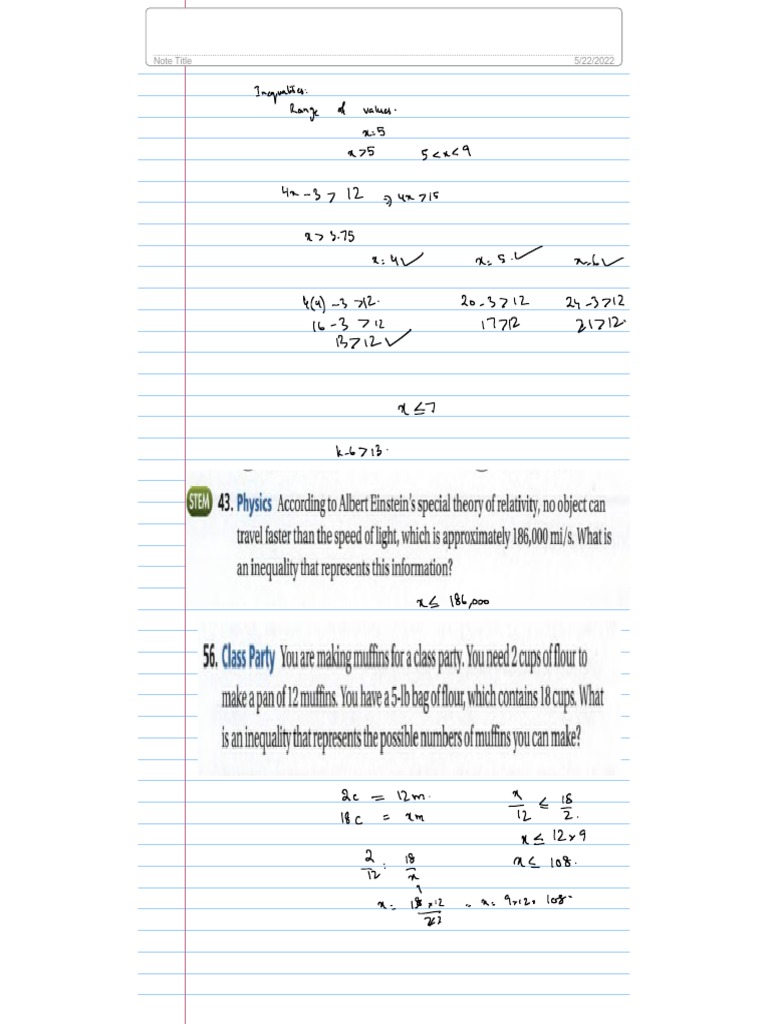 Note Title
5/22/2022
Inequalities:
Range of values.
x=5
x>5 5<x<9
4x-3>12 ⇒ 4x>15
x>3.75
x=4✓ x=5✓ x=6✓
4(4)-3>12. 20-3>12 24-3>12
16-3>12 17>12 21>12.
13>12✓
x≤7
k-6>13.
STEM 43. Physics According to Albert Einstein's special theory of relativity, no object can
travel faster than the speed of light, which is approximately 186,000 mi/s. What is
an inequality that represents this information?
x≤ 186,000
56. Class Party You are making muffins for a class party. You need 2 cups of flour to
make a pan of 12 muffins. You have a 5-lb bag of flour, which contains 18 cups. What
is an inequality that represents the possible numbers of muffins you can make?
2c = 12m. x/12 ≤ 18/2.
18c = xm
x≤ 12×9
2/12 = 18/x x≤ 108.
x= 18×12 x= 9×12= 108